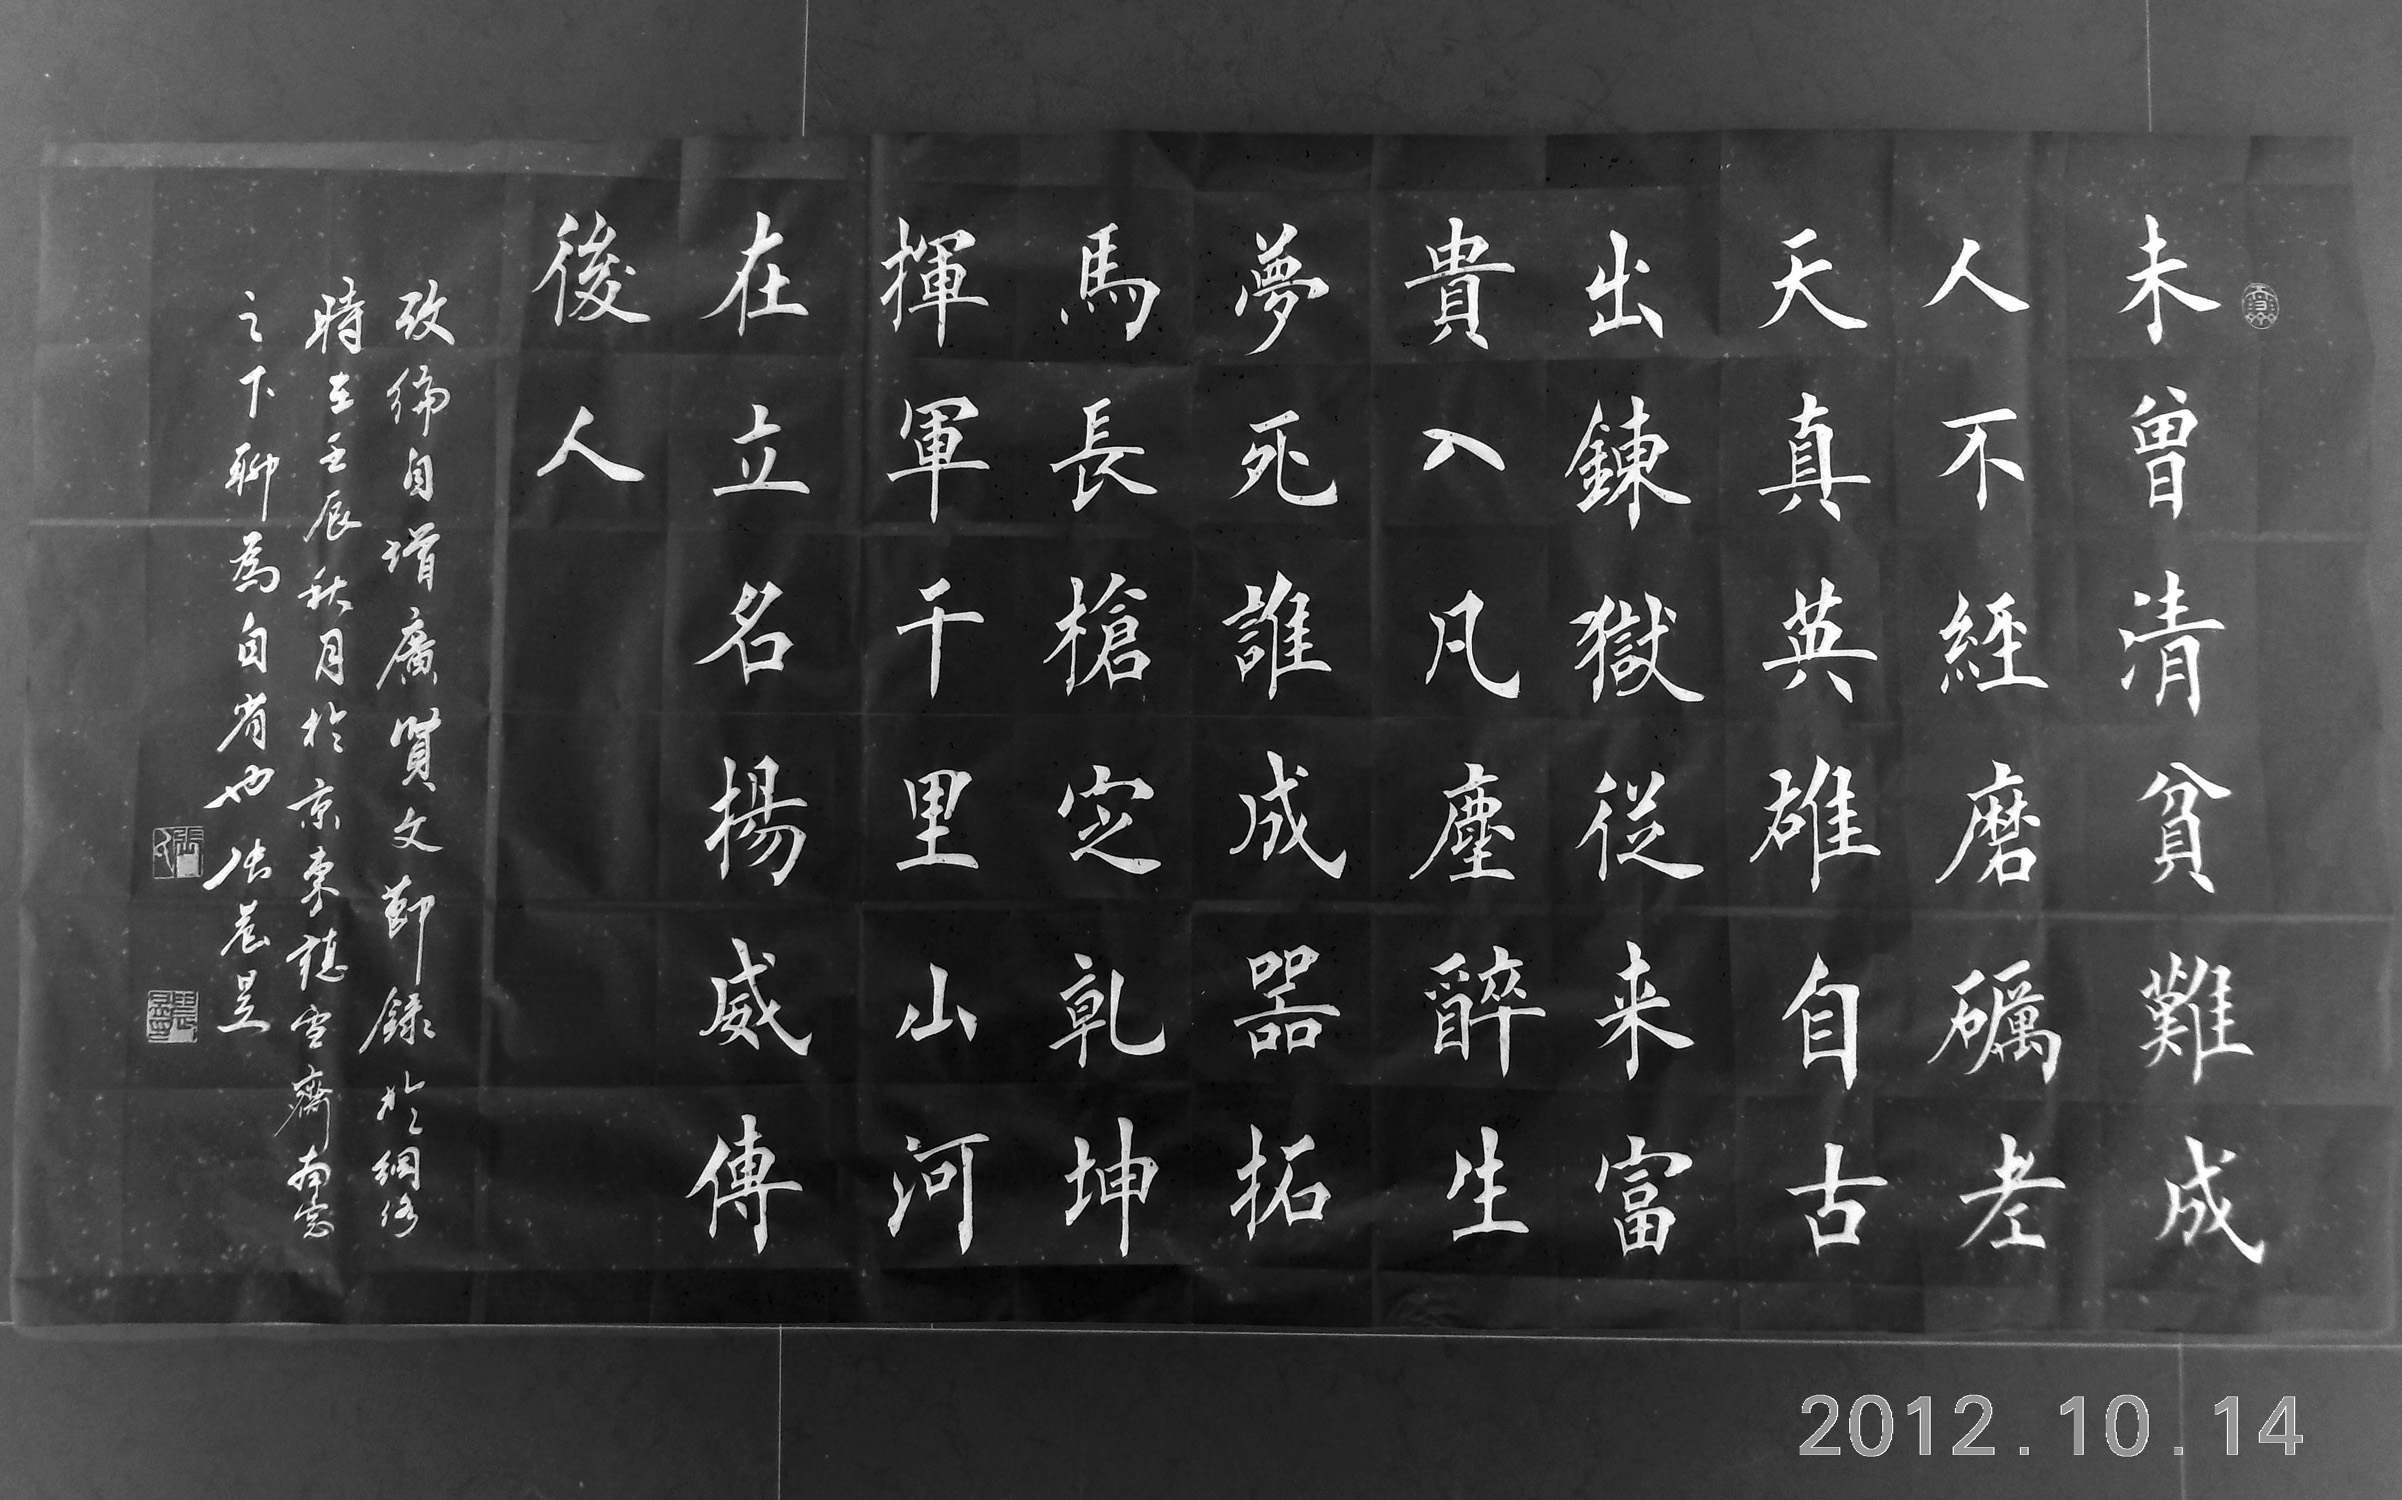 未曾清貧難成
人不經磨礪老
天真英雄自古
出錬獄從来富
貴入凡塵醉生
夢死誰成器拓
馬長槍定乾坤
揮軍千里山河
在立名揚威傳
後人
改編自增廣賢文節錄於網絡
時在壬辰秋月於京東聽雪齋南窓
之下聊為自省也張晨昱
2012.10.14